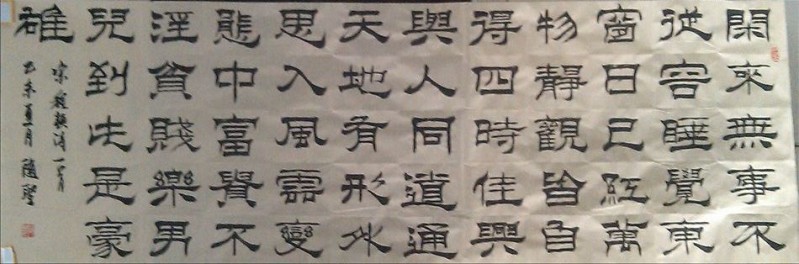 閑來無事不
從容睡覺東
窗日已紅萬
物靜觀皆自
得四時佳興
與人同道通
天地有形外
思入風雲變
態中富貴不
淫貧賤樂男
兒到此是豪
雄
宋程顥詩一首
乙未夏月